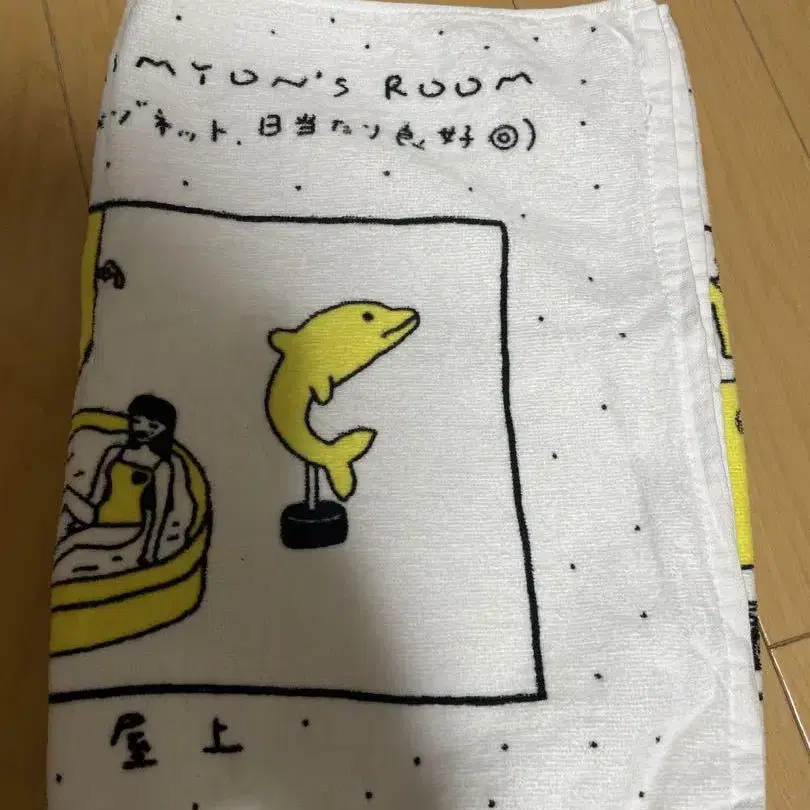 IMYON'S ROOM
ネット、日当たり良好◎)
屋上